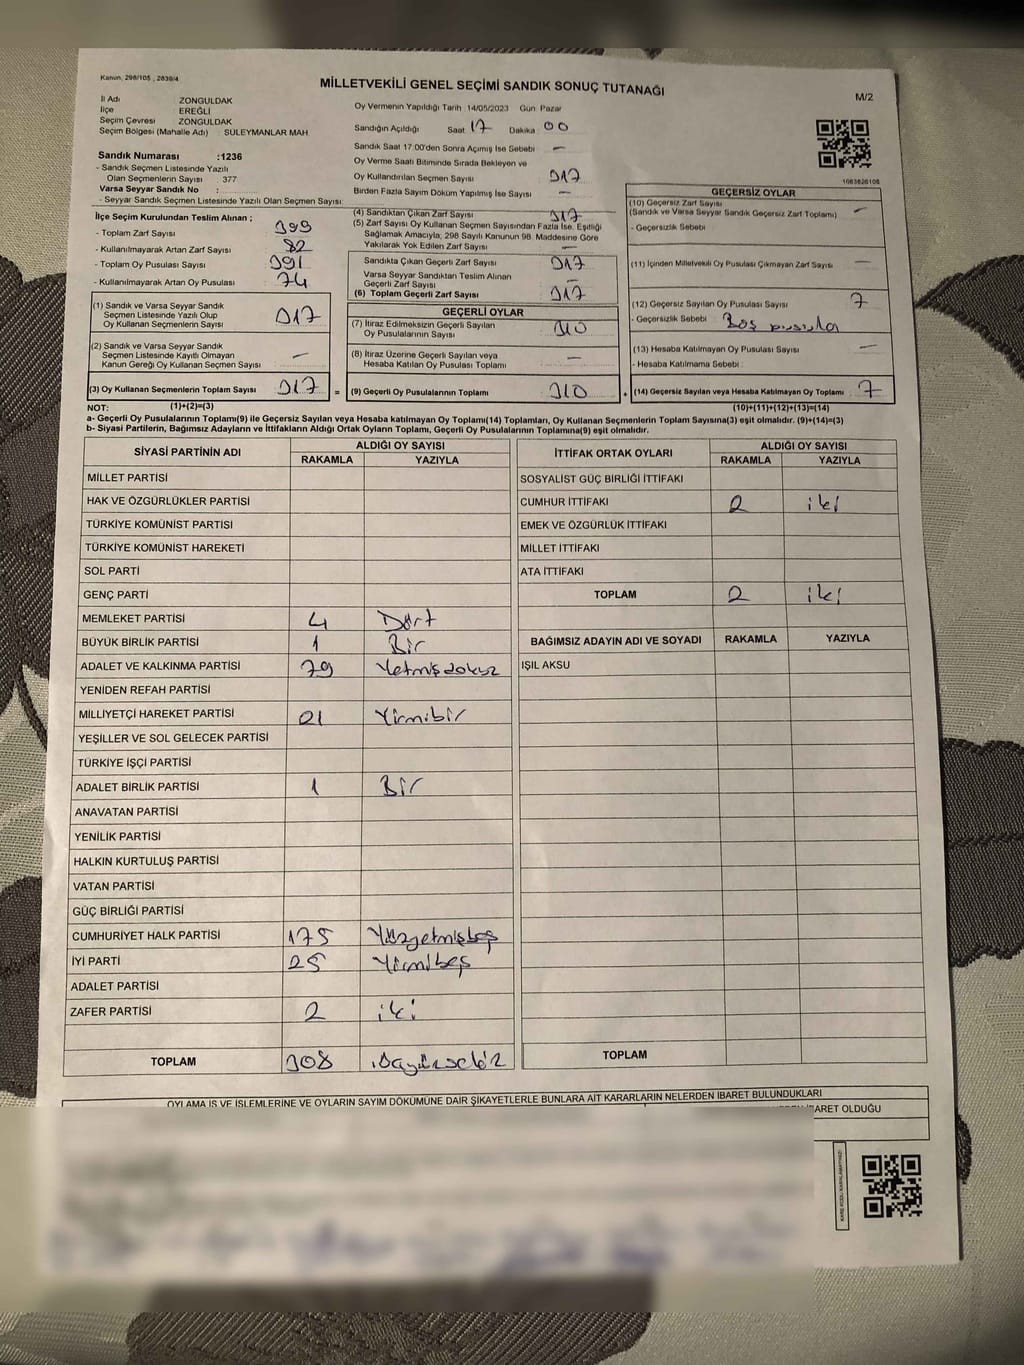 Kanun, 298/105 , 2839/4
MİLLETVEKİLİ GENEL SEÇİMİ SANDIK SONUÇ TUTANAĞI
M/2
İl Adı ZONGULDAK
İlçe EREĞLİ
Seçim Çevresi ZONGULDAK
Seçim Bölgesi (Mahalle Adı) : SÜLEYMANLAR MAH
Sandık Numarası :1236
- Sandık Seçmen Listesinde Yazılı
Olan Seçmenlerin Sayısı 377
Varsa Seyyar Sandık No :
- Seyyar Sandık Seçmen Listesinde Yazılı Olan Seçmen Sayısı:
Oy Vermenin Yapıldığı Tarih 14/05/2023 Gün Pazar
Sandığın Açıldığı Saat 17 Dakika 00
Sandık Saat 17:00'den Sonra Açımış İse Sebebi —
Oy Verme Saati Bitiminde Sırada Bekleyen ve
Oy Kullandırılan Seçmen Sayısı 317
Birden Fazla Sayım Döküm Yapılmış İse Sayısı —
1083826108
İlçe Seçim Kurulundan Teslim Alınan ;
- Toplam Zarf Sayısı 399
- Kullanılmayarak Artan Zarf Sayısı 82
- Toplam Oy Pusulası Sayısı 391
- Kullanılmayarak Artan Oy Pusulası 74
(1) Sandık ve Varsa Seyyar Sandık
Seçmen Listesinde Yazılı Olup
Oy Kullanan Seçmenlerin Sayısı 317
(2) Sandık ve Varsa Seyyar Sandık
Seçmen Listesinde Kayıtlı Olmayan
Kanun Gereği Oy Kullanan Seçmen Sayısı —
(3) Oy Kullanan Seçmenlerin Toplam Sayısı 317 =
(1)+(2)=(3)
(4) Sandıktan Çıkan Zarf Sayısı 317
(5) Zarf Sayısı Oy Kullanan Seçmen Sayısından Fazla İse, Eşitliği
Sağlamak Amacıyla, 298 Sayılı Kanunun 98. Maddesine Göre
Yakılarak Yok Edilen Zarf Sayısı —
Sandıkta Çıkan Geçerli Zarf Sayısı 317
Varsa Seyyar Sandıktan Teslim Alınan
Geçerli Zarf Sayısı —
(6) Toplam Geçerli Zarf Sayısı 317
GEÇERLİ OYLAR
(7) İtiraz Edilmeksizin Geçerli Sayılan
Oy Pusulalarının Sayısı 310
(8) İtiraz Üzerine Geçerli Sayılan veya
Hesaba Katılan Oy Pusulası Toplamı —
(9) Geçerli Oy Pusulalarının Toplamı 310 +
GEÇERSİZ OYLAR
(10) Geçersiz Zarf Sayısı
(Sandık ve Varsa Seyyar Sandık Geçersiz Zarf Toplamı) —
- Geçersizlik Sebebi
(11) İçinden Milletvekili Oy Pusulası Çıkmayan Zarf Sayısı —
(12) Geçersiz Sayılan Oy Pusulası Sayısı 7
- Geçersizlik Sebebi Boş pusula
(13) Hesaba Katılmayan Oy Pusulası Sayısı —
- Hesaba Katılmama Sebebi
(14) Geçersiz Sayılan veya Hesaba Katılmayan Oy Toplamı 7
(10)+(11)+(12)+(13)=(14)
NOT:
a- Geçerli Oy Pusulalarının Toplamı(9) ile Geçersiz Sayılan veya Hesaba katılmayan Oy Toplamı(14) Toplamları, Oy Kullanan Seçmenlerin Toplam Sayısına(3) eşit olmalıdır. (9)+(14)=(3)
b- Siyasi Partilerin, Bağımsız Adayların ve İttifakların Aldığı Ortak Oyların Toplamı, Geçerli Oy Pusulalarının Toplamına(9) eşit olmalıdır.
SİYASİ PARTİNİN ADI ALDIĞI OY SAYISI
RAKAMLA YAZIYLA
MİLLET PARTİSİ
HAK VE ÖZGÜRLÜKLER PARTİSİ
TÜRKİYE KOMÜNİST PARTİSİ
TÜRKİYE KOMÜNİST HAREKETİ
SOL PARTİ
GENÇ PARTİ
MEMLEKET PARTİSİ 4 Dört
BÜYÜK BİRLİK PARTİSİ 1 Bir
ADALET VE KALKINMA PARTİSİ 79 Yetmişdokuz
YENİDEN REFAH PARTİSİ
MİLLİYETÇİ HAREKET PARTİSİ 21 Yirmibir
YEŞİLLER VE SOL GELECEK PARTİSİ
TÜRKİYE İŞÇİ PARTİSİ
ADALET BİRLİK PARTİSİ 1 Bir
ANAVATAN PARTİSİ
YENİLİK PARTİSİ
HALKIN KURTULUŞ PARTİSİ
VATAN PARTİSİ
GÜÇ BİRLİĞİ PARTİSİ
CUMHURİYET HALK PARTİSİ 175 Yüzyetmişbeş
İYİ PARTİ 25 Yirmibeş
ADALET PARTİSİ
ZAFER PARTİSİ 2 iki
TOPLAM 308 üçyüzsekiz
İTTİFAK ORTAK OYLARI ALDIĞI OY SAYISI
RAKAMLA YAZIYLA
SOSYALİST GÜÇ BİRLİĞİ İTTİFAKI
CUMHUR İTTİFAKI 2 iki
EMEK VE ÖZGÜRLÜK İTTİFAKI
MİLLET İTTİFAKI
ATA İTTİFAKI
TOPLAM 2 iki
BAĞIMSIZ ADAYIN ADI VE SOYADI RAKAMLA YAZIYLA
IŞIL AKSU
TOPLAM
OYLAMA İŞ VE İŞLEMLERİNE VE OYLARIN SAYIM DÖKÜMÜNE DAİR ŞİKAYETLERLE BUNLARA AİT KARARLARIN NELERDEN İBARET BULUNDUKLARI
İBARET OLDUĞU